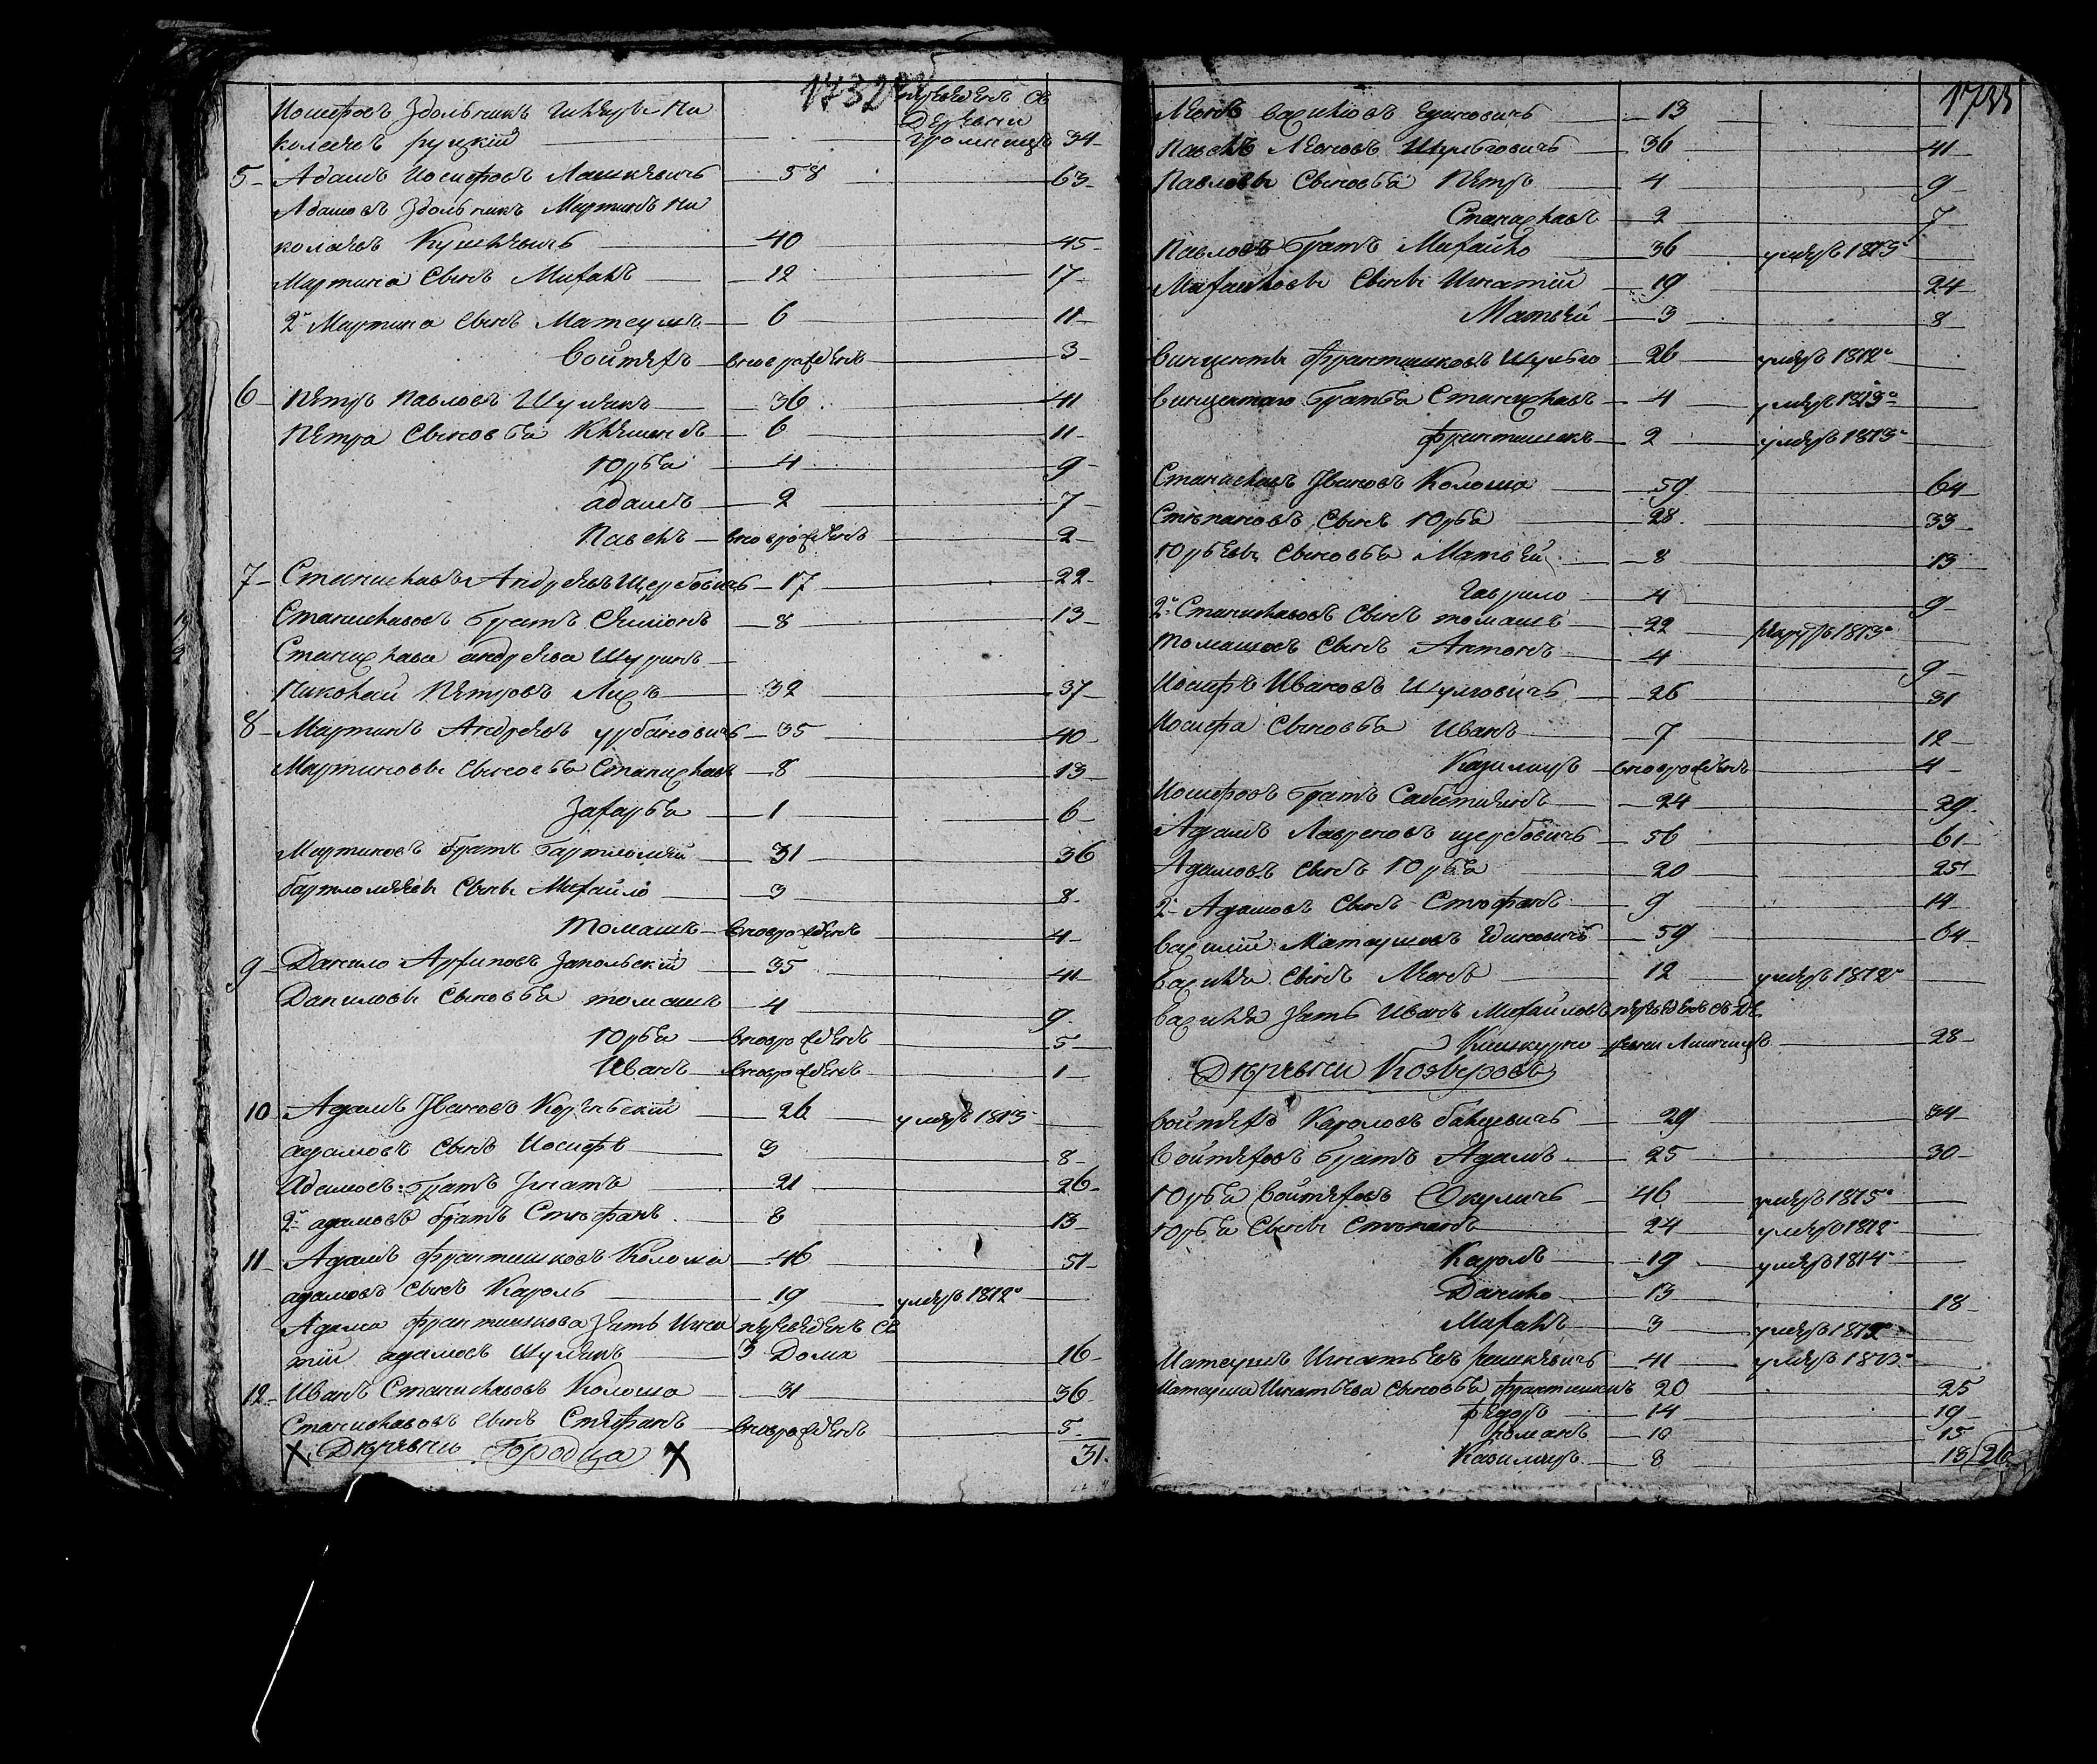 1732
Иосифовъ Здольникъ Ни
колаевъ руцкій переведенъ съ Деревни 34
5 Адамъ Иосифовъ Лашкевичъ 58 63
Адамовъ Здольникъ Мартинъ Ни
колаевъ 40 45
Мартина Сынъ Михалъ 12 17
2й Мартина Сынъ Матеушъ 6 11
Войтехъ вновьрожденъ 3
6 Петръ Павловъ Шулякъ 36 41
Петра Сыновья Клеменсъ 6 11
Юрья 4 9
адамъ 2 7
Павелъ вновьрожденъ 2
7 Станиславъ Андреевъ Щербовичъ 17 22
Станиславовъ братъ Симонъ 8 13
Станислава андреева Шуринъ
Николай Петровъ Лисъ 32 37
8 Мартинъ Андреевъ урбановичъ 35 40
Мартиновы Сыновья Станиславъ 8 13
Захарья 1 6
Мартиновъ братъ бартломей 31 36
бартломеевы Сыны Михайло 3 8
Томашъ вновьрожденъ 4
9 Данило Архиповъ Запольскій 35 41
Даниловы Сыновья томашъ 4 9
Юрья вновьрожденъ 5
Иванъ вновьрожденъ 1
10 Адамъ Ивановъ 26 умеръ 1813
адамовъ Сынъ Иосифъ 3 8
Адамовъ братъ Игнатъ 21 26
2й адамовъ братъ Стефанъ 8 13
11 Адамъ франтишковъ Колоша 46 51
адамовъ Сынъ Кароль 19 умеръ 1812
Адама франтишкова Зять Игна переведенъ съ
тій адамовъ Шулякъ 3 Дома 16
12 Иванъ Станиславовъ Колоша 31 36
Станиславовъ Сынъ Стефанъ вновьрожденъ 5
Деревни Городца 31
1733
Леонъ васильовъ 13
Павелъ Леоновъ Шульговичъ 36 41
Павловы Сыновья Петръ 4 9
Станиславъ 2 7
Павловъ братъ Михайло 36 умеръ 1813
Михайловы Сыны Игнатій 19 24
Матвей 3 8
Винцентъ франтишковъ Шульго 26 умеръ 1812
Винцентого братья Станиславъ 4 умеръ 1813
франтишекъ 2 умеръ 1813
Станиславъ Ивановъ Колоша 59 64
Степановъ Сынъ Юрья 28 33
Юрьевы Сыновья Матвей 8 13
Гаврило 4 9
2й Станиславовъ Сынъ томашъ 22 1813
томашовъ Сынъ Антонъ 4 9
Иосифъ Ивановъ Шулговичъ 26 31
Иосифа Сыновья Иванъ 7 12
Казимиръ вновьрожденъ 4
Иосифовъ братъ Сабетиянъ 24 29
Адамъ Лавреновъ щербовичъ 56 61
Адамовъ Сынъ Юрья 20 25
2й Адамовъ Сынъ Стефанъ 9 14
василій Матеушовъ 59 64
василья Сынъ Леонъ 12 умеръ 1812
василья Зять Иванъ Михайловъ переведенъ съ де
28
Деревни
войтехъ Кароловъ 29 34
Войтеховъ братъ Адамъ 25 30
Юрья Войтеховъ Окуличъ 46 умеръ 1815
Юрья Сыны Степанъ 24 умеръ 1812
Кароль 19 умеръ 1814
Данило 13 18
Михалъ 3 умеръ 1812
Матеушъ Игнатьевъ 41 умеръ 1813
Матеуша Игнатьева Сыновья франтишекъ 20 25
федоръ 14 19
романъ 10 15
Казимиръ 8 13 26